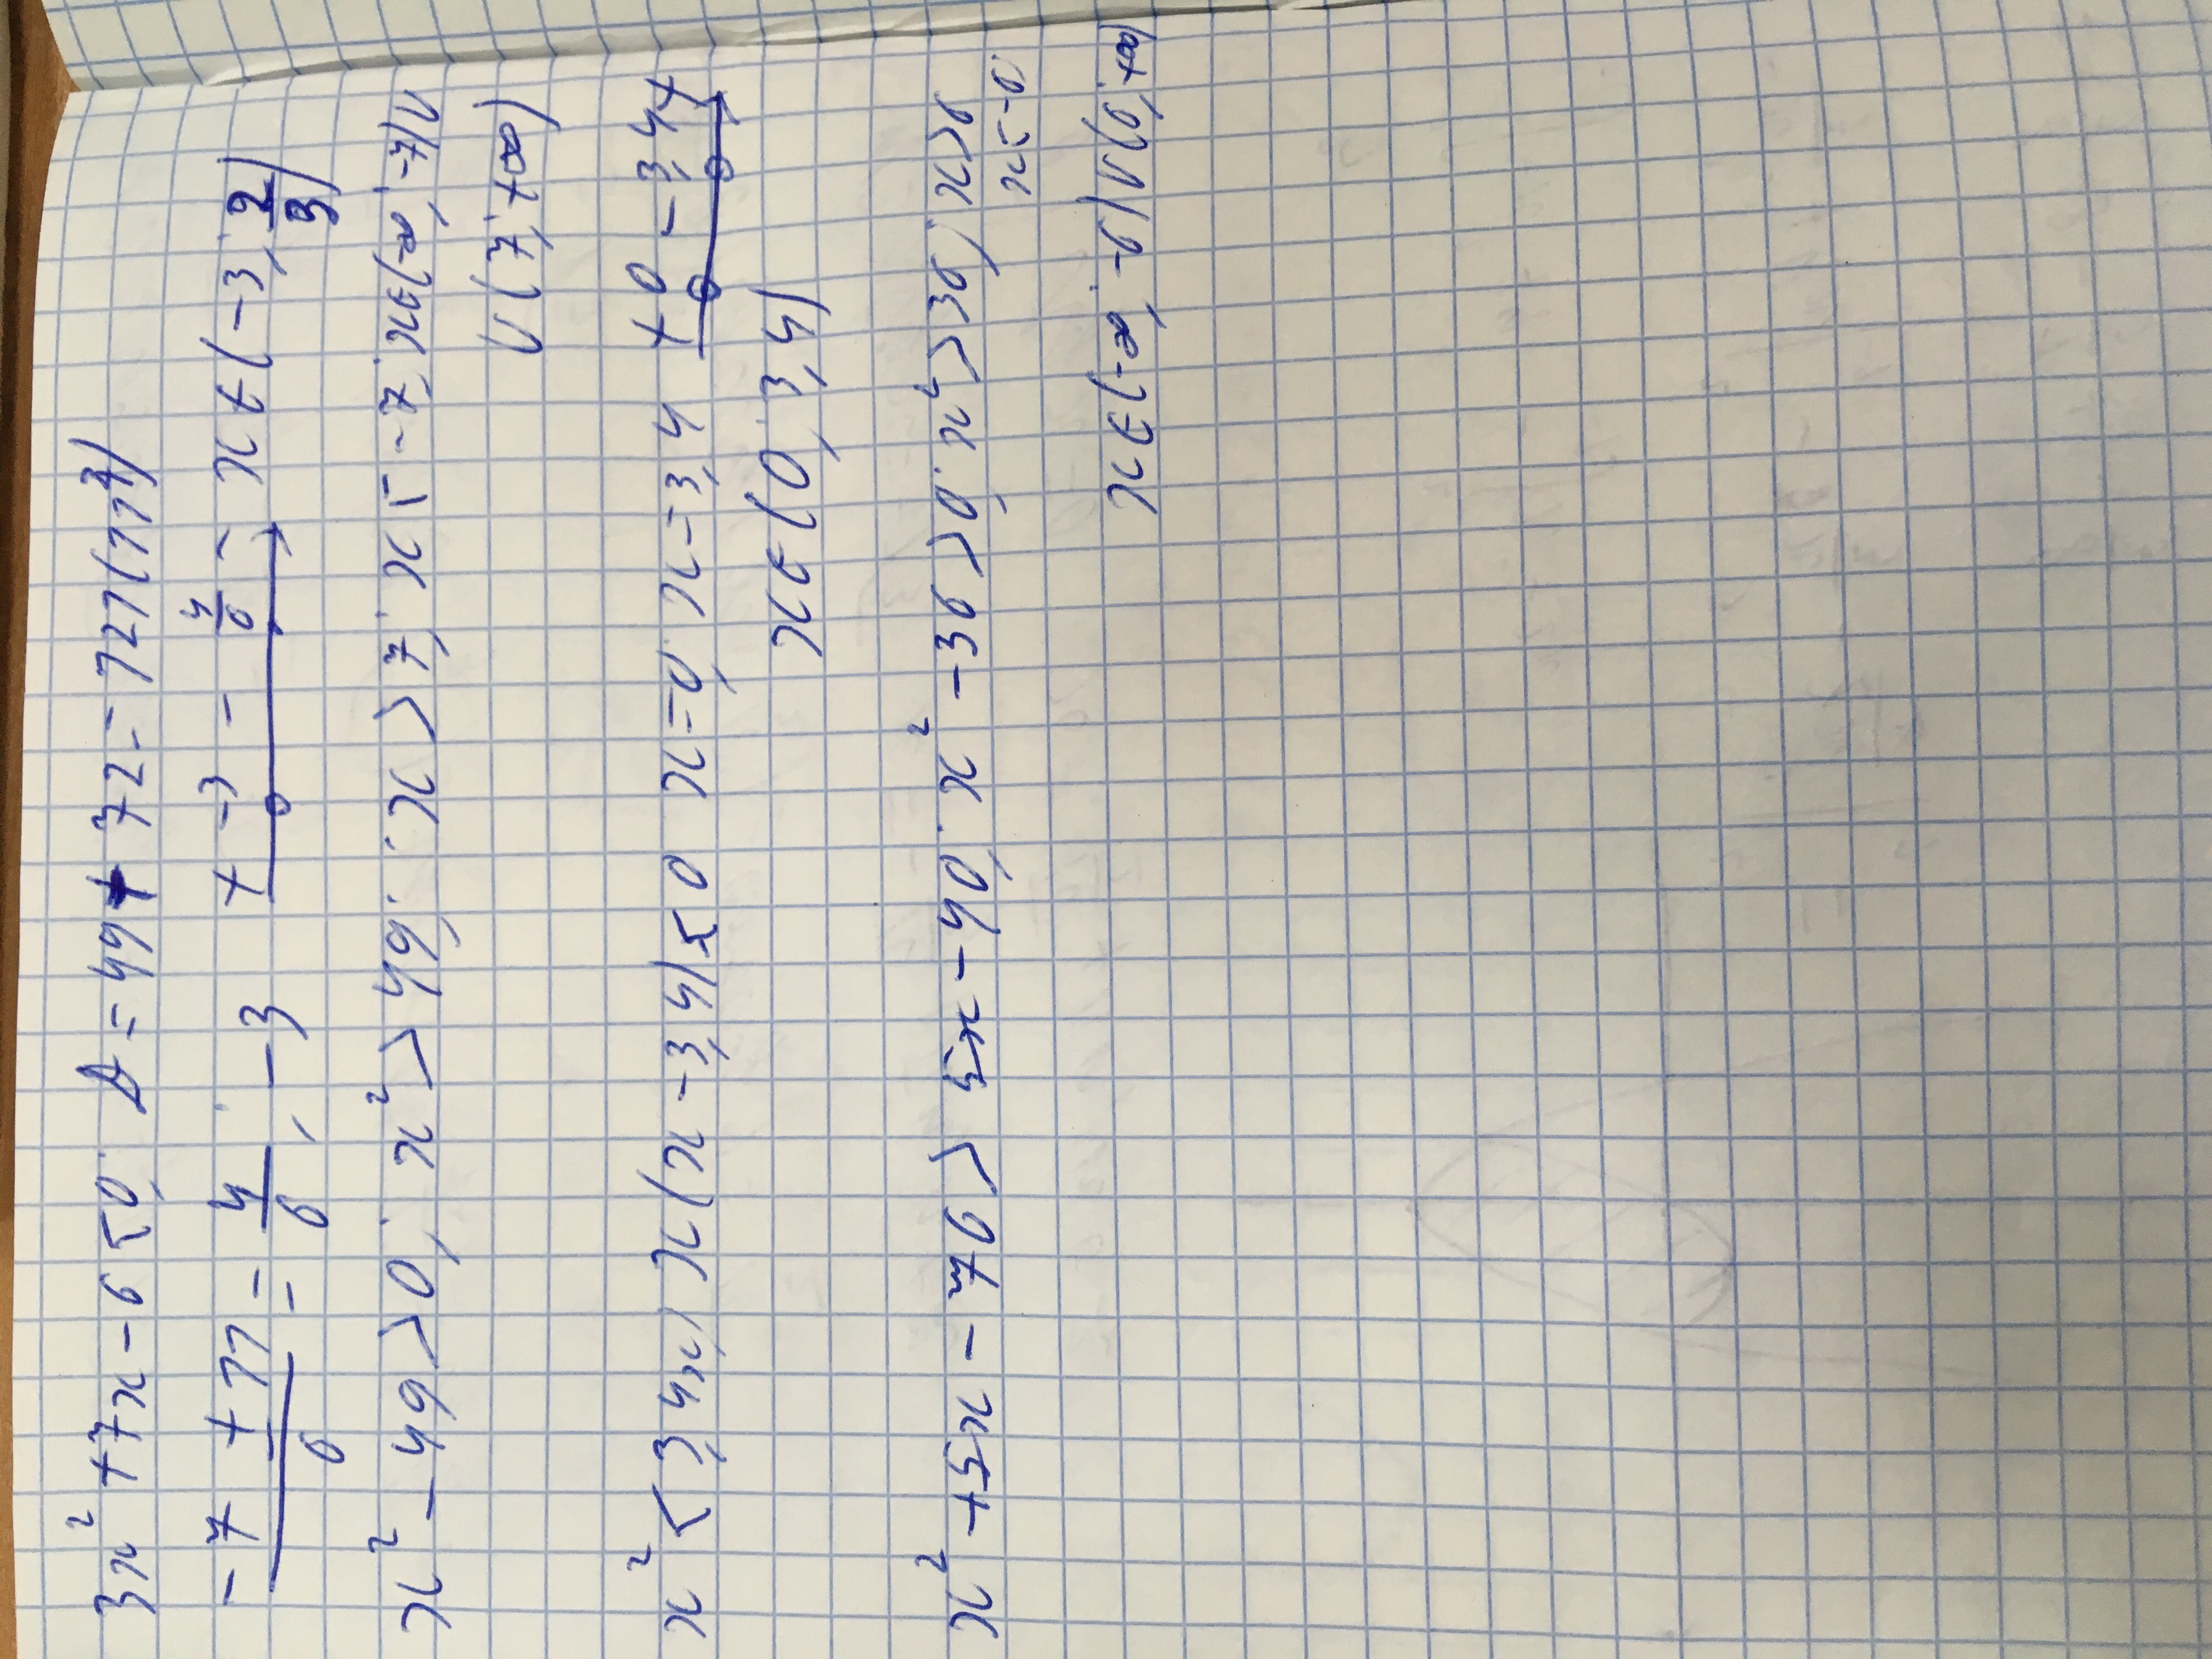 3x² + 7x - 6 < 0; D = 49 + 72 = 121 (11²)
(-7 ± 11)/6 = 4/6; -3 + -3 - 4/6 + x ∈ (-3; 2/3)
x² - 49 > 0; x² > 49; x > 7; x < -7; x ∈ (-∞; -7) ∪
∪ (7; +∞)
x² < 3,4x; x(x - 3,4) < 0 x = 0; x = 3,4 + 0 - 3,4 +
x ∈ (0; 3,4)
x² + 5x - 76 > 5x - 40; x² - 36 > 0; x² > 36; x > 6
x < -6
x ∈ (-∞; -6) ∪ (6; +∞)